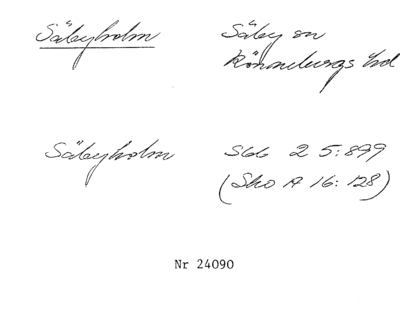 Säbyholm
Säby sn
Rönnebergs hd
Säbyholm
SGG 2 5:899
(Sko A 16:128)
Nr 24090